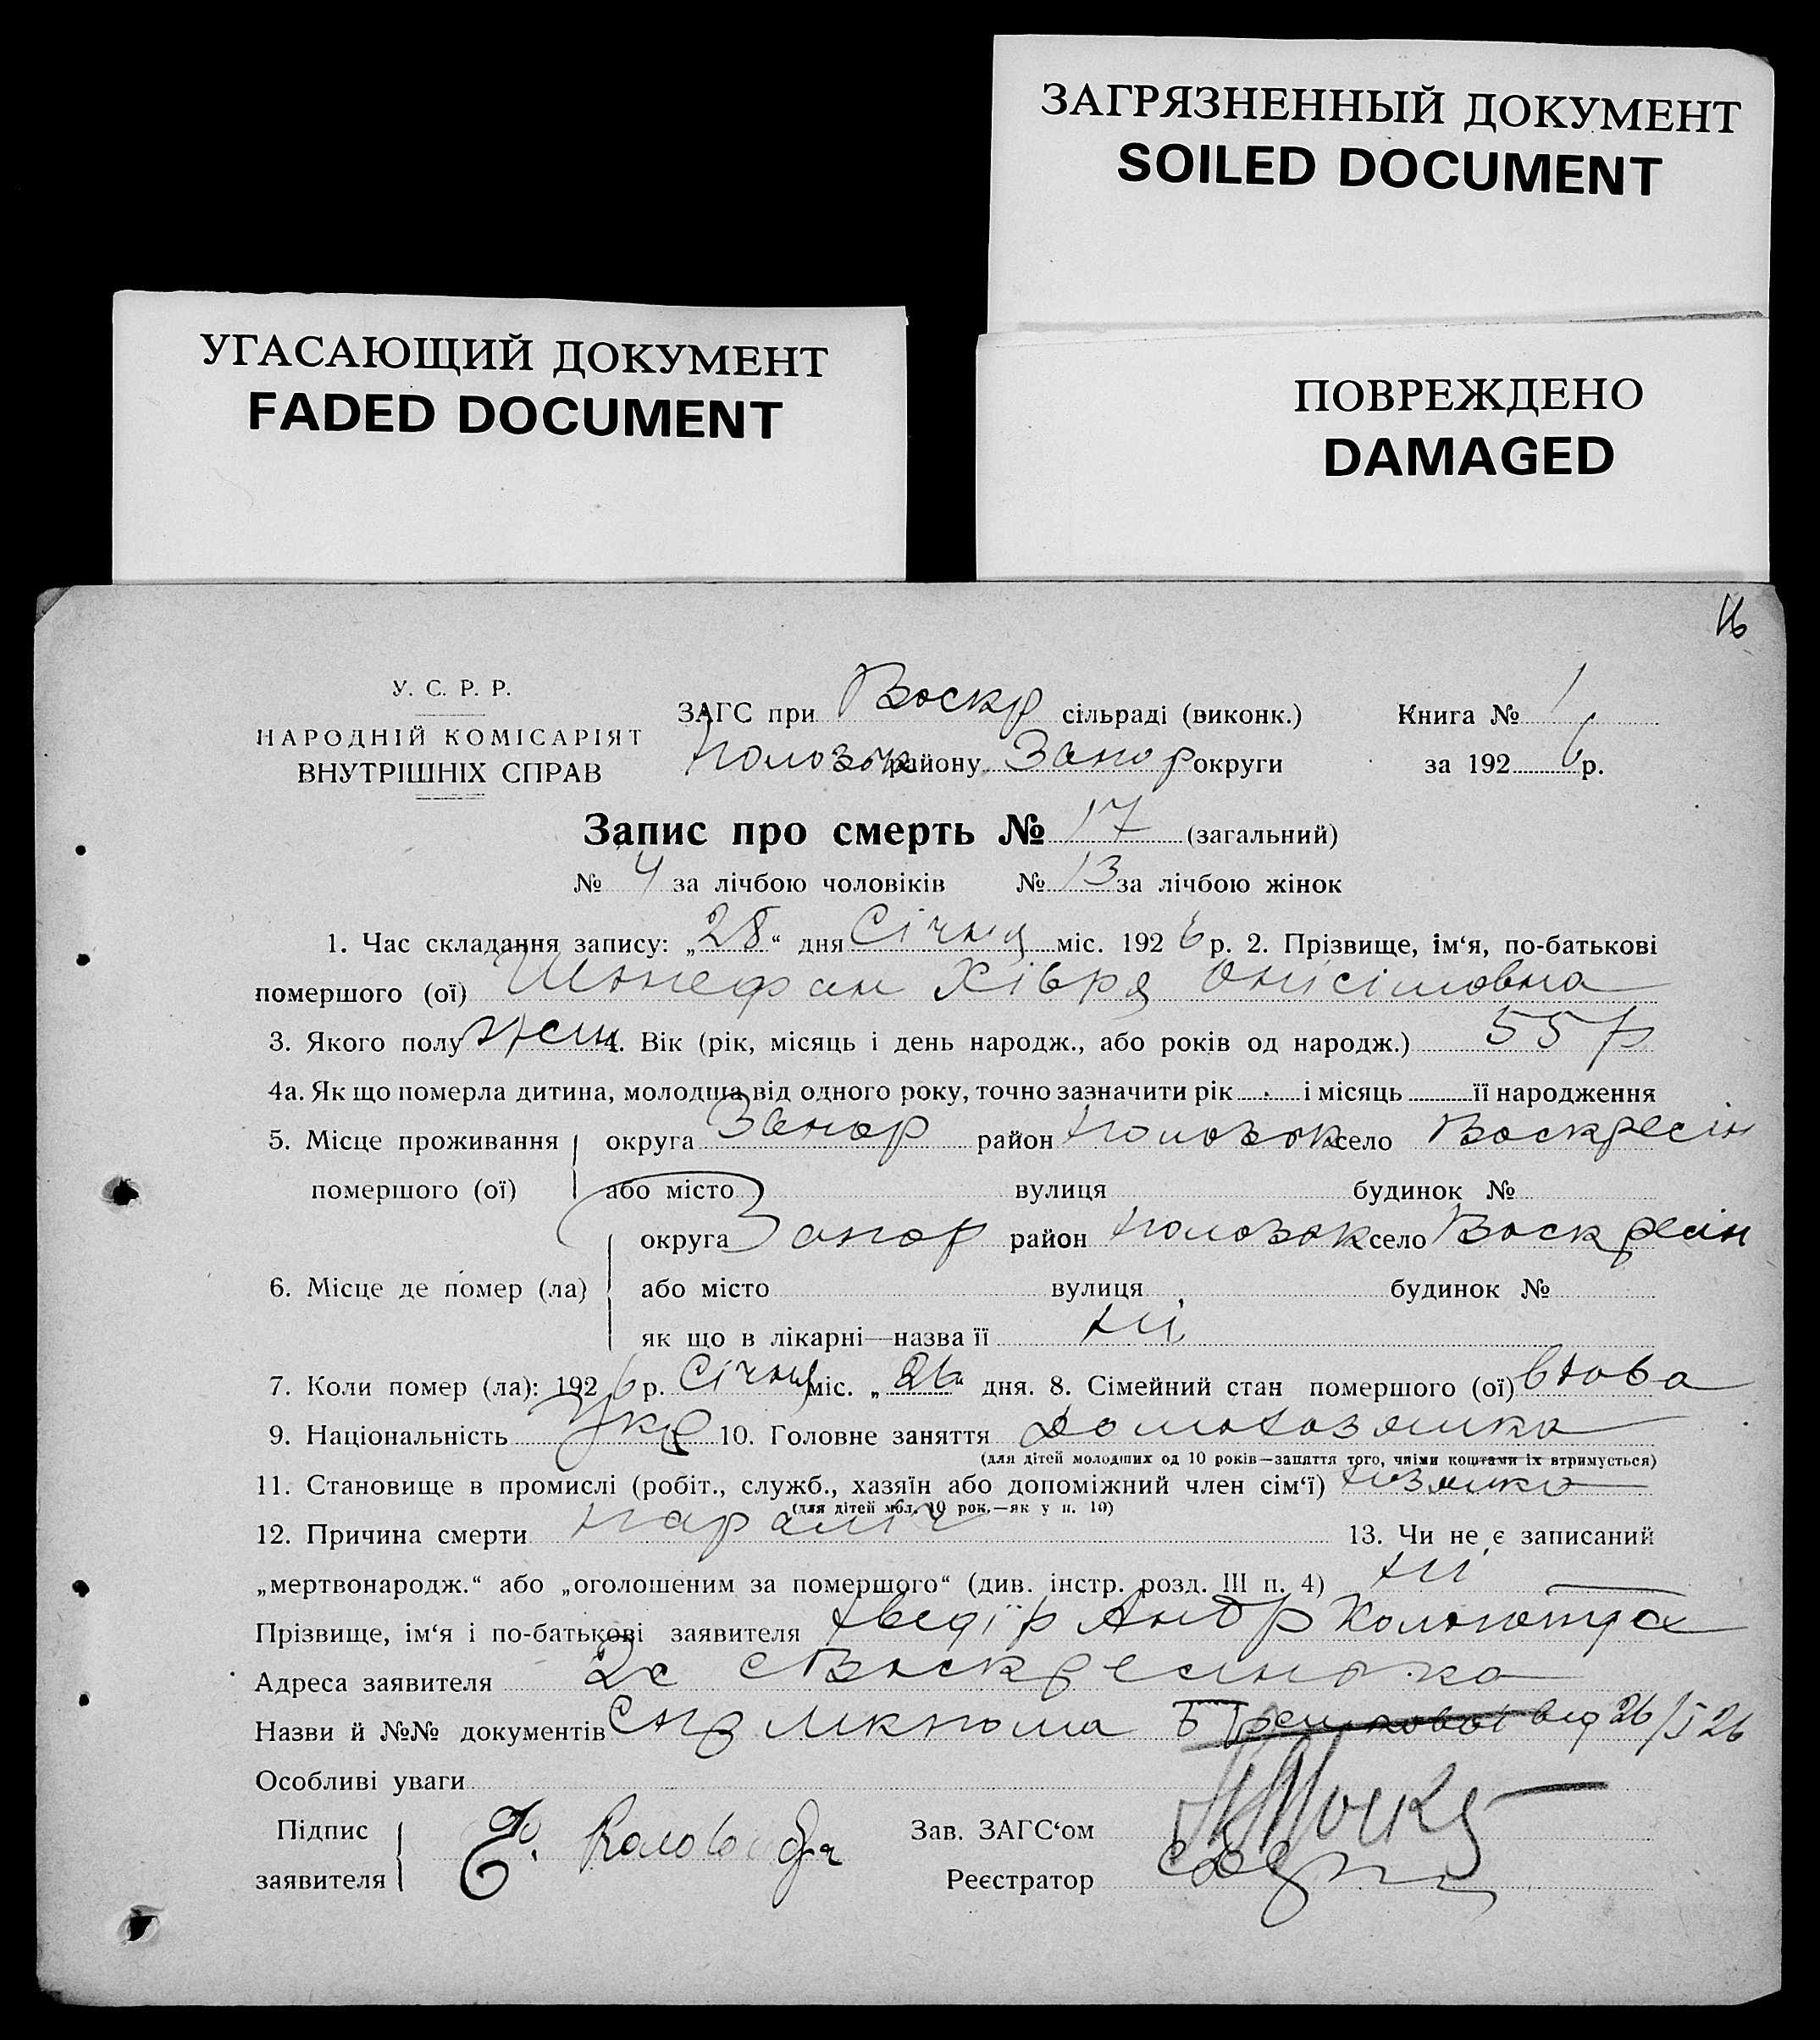 ЗАГРЯЗНЕННЫЙ ДОКУМЕНТ
SOILED DOCUMENT
УГАСАЮЩИЙ ДОКУМЕНТ
FADED DOCUMENT
ПОВРЕЖДЕНО
DAMAGED
16
У. С. Р. Р.
НАРОДНІЙ КОМІСАРІЯТ
ВНУТРІШНІХ СПРАВ
ЗАГС при Воскр сільраді (виконк.) Книга № 1
Пологок району Запор округи за 1926 р.
Запис про смерть № 17 (загальний)
№ 4 за лічбою чоловіків № 13 за лічбою жінок
1. Час складання запису: „28“ дня Січня міс. 1926 р. 2. Прізвище, ім‘я, по-батькові
помершого (ої) Хівря Онісімовна
3. Якого полу жен 4. Вік (рік, місяць і день народж., або років од народж.) 55 р
4а. Як що померла дитина, молодша від одного року, точно зазначити рік і місяць її народження
5. Місце проживання округа Запор район Пологок село Воскресін
помершого (ої) або місто вулиця будинок №
округа Запор район Пологок село Воскресін
6. Місце де помер (ла) або місто вулиця будинок №
як що в лікарні—назва її ні
7. Коли помер (ла): 1926 р. Січня міс. „26“ дня. 8. Сімейний стан помершого (ої) вдова
9. Національність Укр 10. Головне заняття домохозяйка
(для дітей молодших од 10 років—заняття того, чиїми коштами їх втримується)
11. Становище в промислі (робіт., служб., хазяїн або допоміжний член сім‘ї) хозяйка
(для дітей мол. 10 рок.—як у п. 10)
12. Причина смерти параліч 13. Чи не є записаний
„мертвонародж.“ або „оголошеним за помершого“ (див. інстр. розд. III п. 4) ні
Прізвище, ім‘я і по-батькові заявителя Хведір Андр
Адреса заявителя с Воскресінка
Назви й №№ документів від 26/I 26
Особливі уваги
Підпис
заявителя
Зав. ЗАГС‘ом
Реєстратор